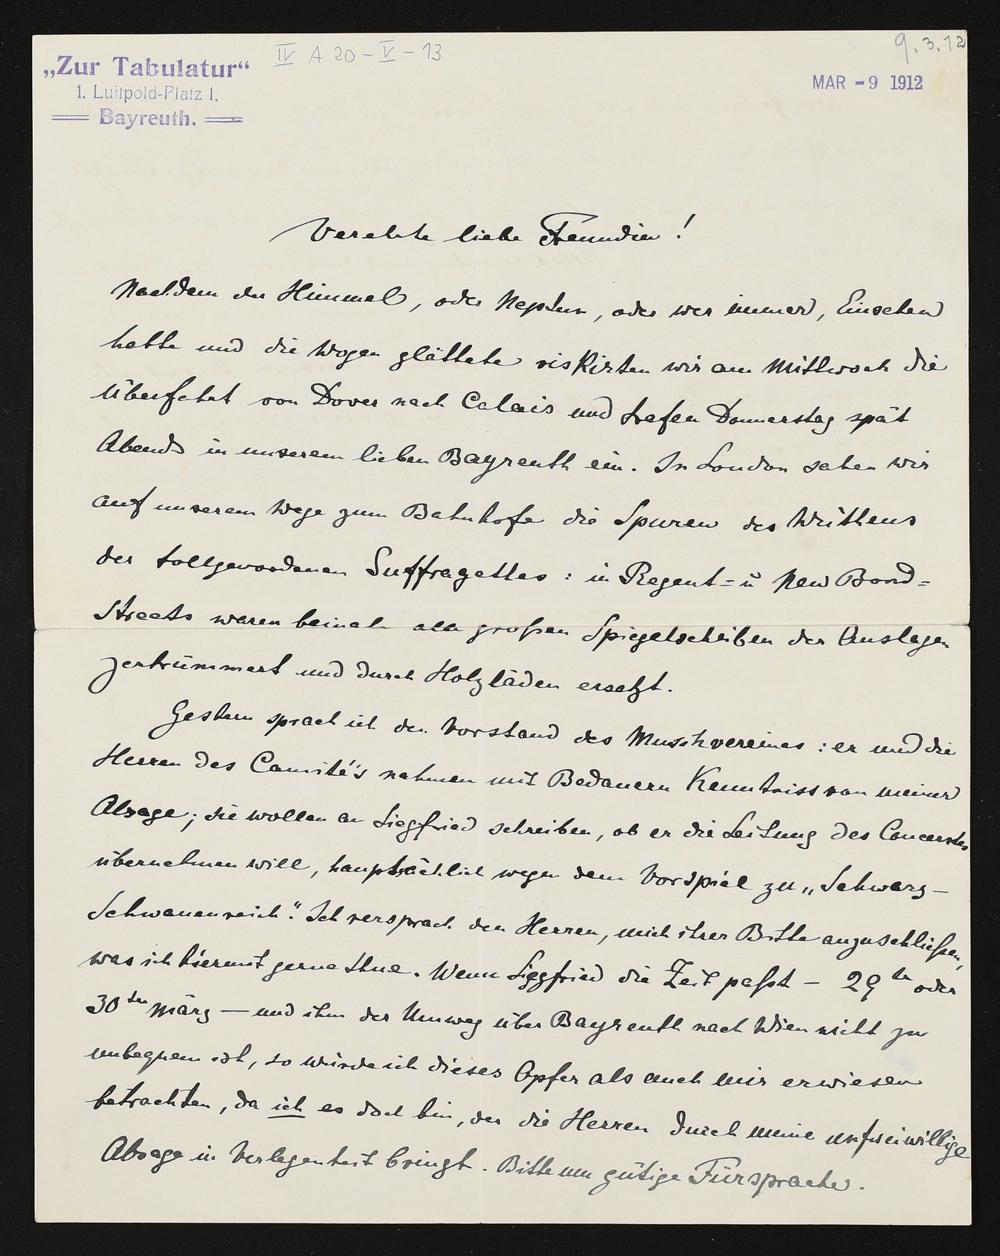 „Zur Tabulatur“
1. Luitpold-Platz I.
Bayreuth.
IV A 20-V-13
9.3.12
MAR -9 1912
Verehrte liebe Freundin!
Nachdem der Himmel, oder Neptun, oder wer immer, Einsehen
hatte und die Wogen glättete riskirten wir am Mittwoch die
Überfahrt von Dover nach Calais und trafen Donnerstag spät
Abends in unserem lieben Bayreuth ein. In London sahen wir
auf unserem Wege zum Bahnhofe die Spuren des Wüthens
der tollgewordenen Suffragettes: in Regent= u New Bond=
Streets waren beinah alle großen Spiegelscheiben der Auslagen
zertrümmert und durch Holzläden ersetzt.
Gestern sprach ich den Vorstand des Musikvereines: er und die
Herren des Comité's nahmen mit Bedauern Kenntniss von meiner
Absage; sie wollen an Siegfried schreiben, ob er die Leitung des Concertes
übernehmen will, hauptsächlich wegen dem Vorspiel zu „Schwarz-
Schwanenreich“. Ich versprach den Herren, mich ihrer Bitte anzuschließen,
was ich hiermit gerne thue. Wenn Siegfried die Zeit paßt – 29ten oder
30ten März – und ihm der Umweg über Bayreuth nach Wien nicht zu
unbequem ist, so würde ich dieses Opfer als auch mir erwiesen
betrachten, da ich es doch bin, der die Herren durch meine unfreiwillige
Absage in Verlegenheit bringt. Bitte um gütige Fürsprache.